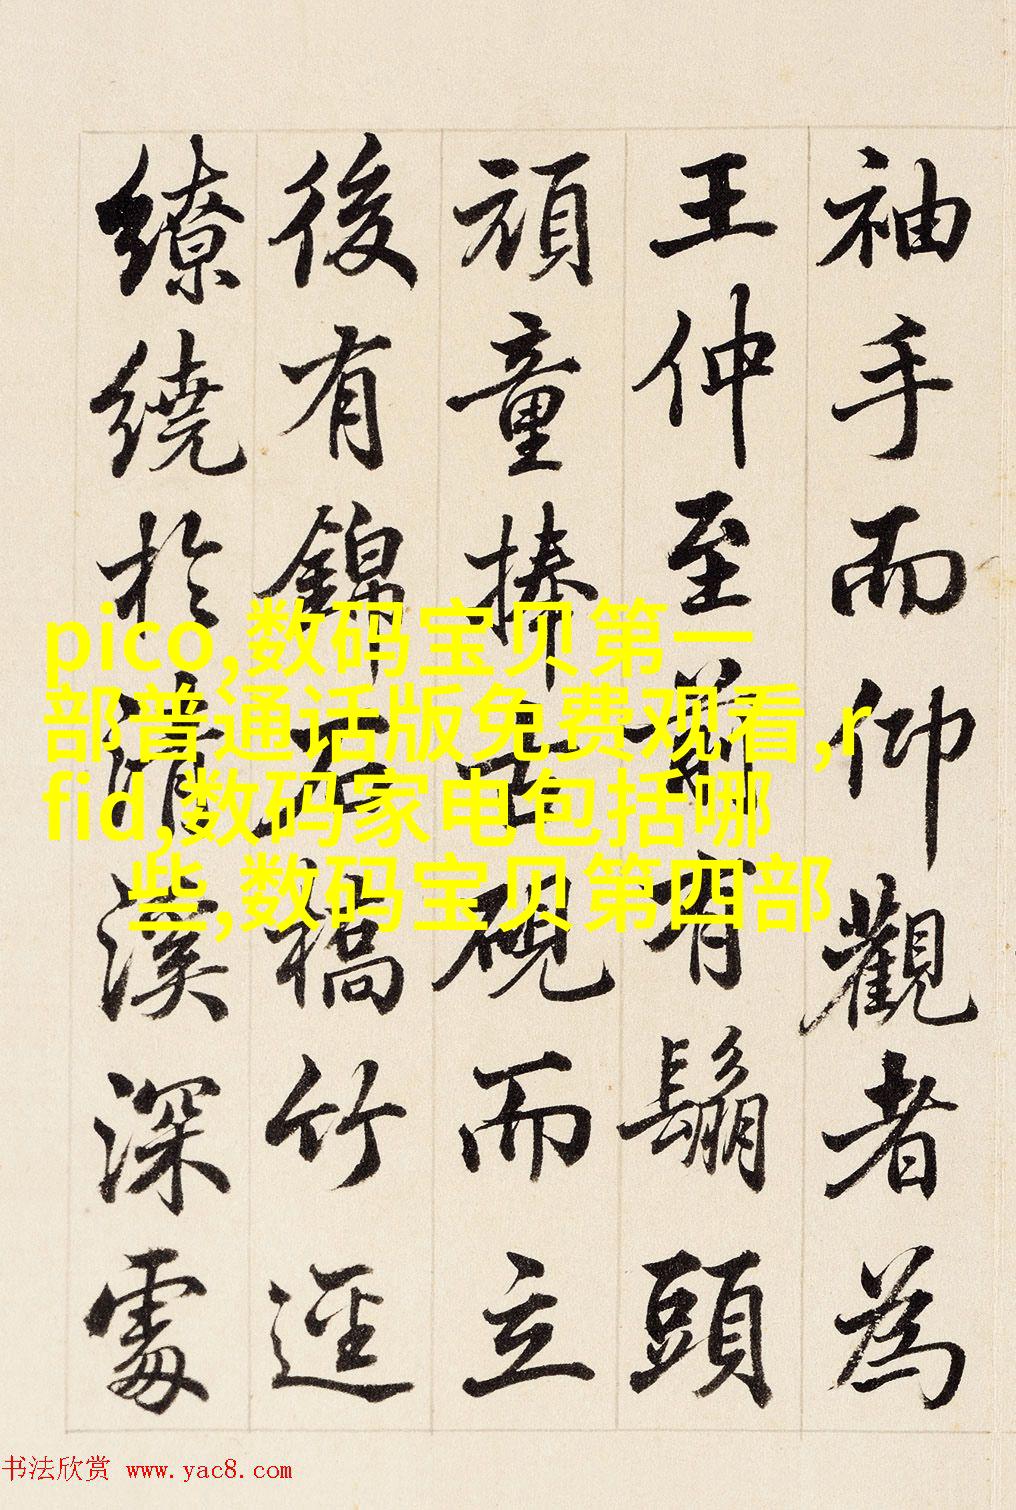 袖手而仰觀者為
王仲至前有鬅頭
頑童捧古硯而立
後有錦石橋竹逕
繚繞於清溪深處
pico,数码宝贝第一
部普通话版免费观看,r
fid,数码家电包括哪
些,数码宝贝第四部
书法欣赏 www.yac8.com